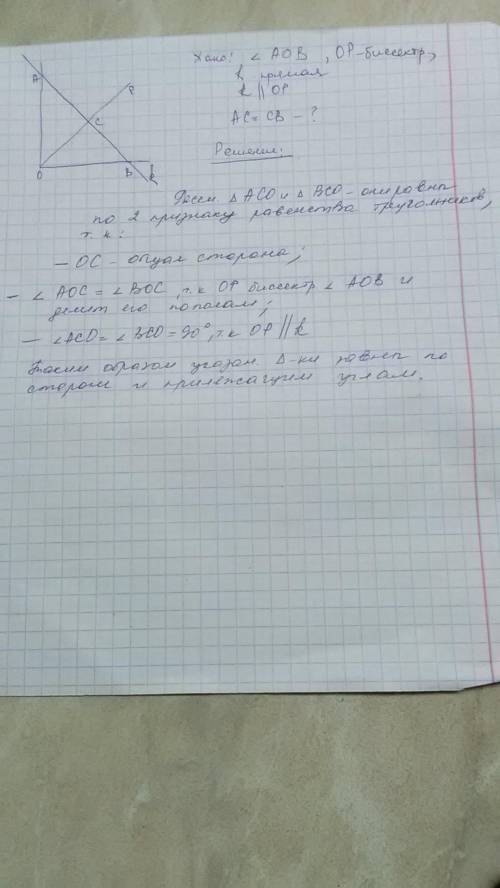 Дано: ∠ AOB, OP-биссектр,
k прямая
k || OP
AC = CB - ?
Решение:
A
P
C
O
B
k
Расси △ ACO и △ BCO - они равны
по 2 признаку равенства треугольников,
т. к:
- OC - общая сторона;
- ∠ AOC = ∠ BOC, т.к OP биссектр ∠ AOB и
делит его пополам;
- ∠ACO = ∠BCO = 90°, т.к OP || k
Таким образом указан. △-ки равны по
сторон и прилежащим углам.